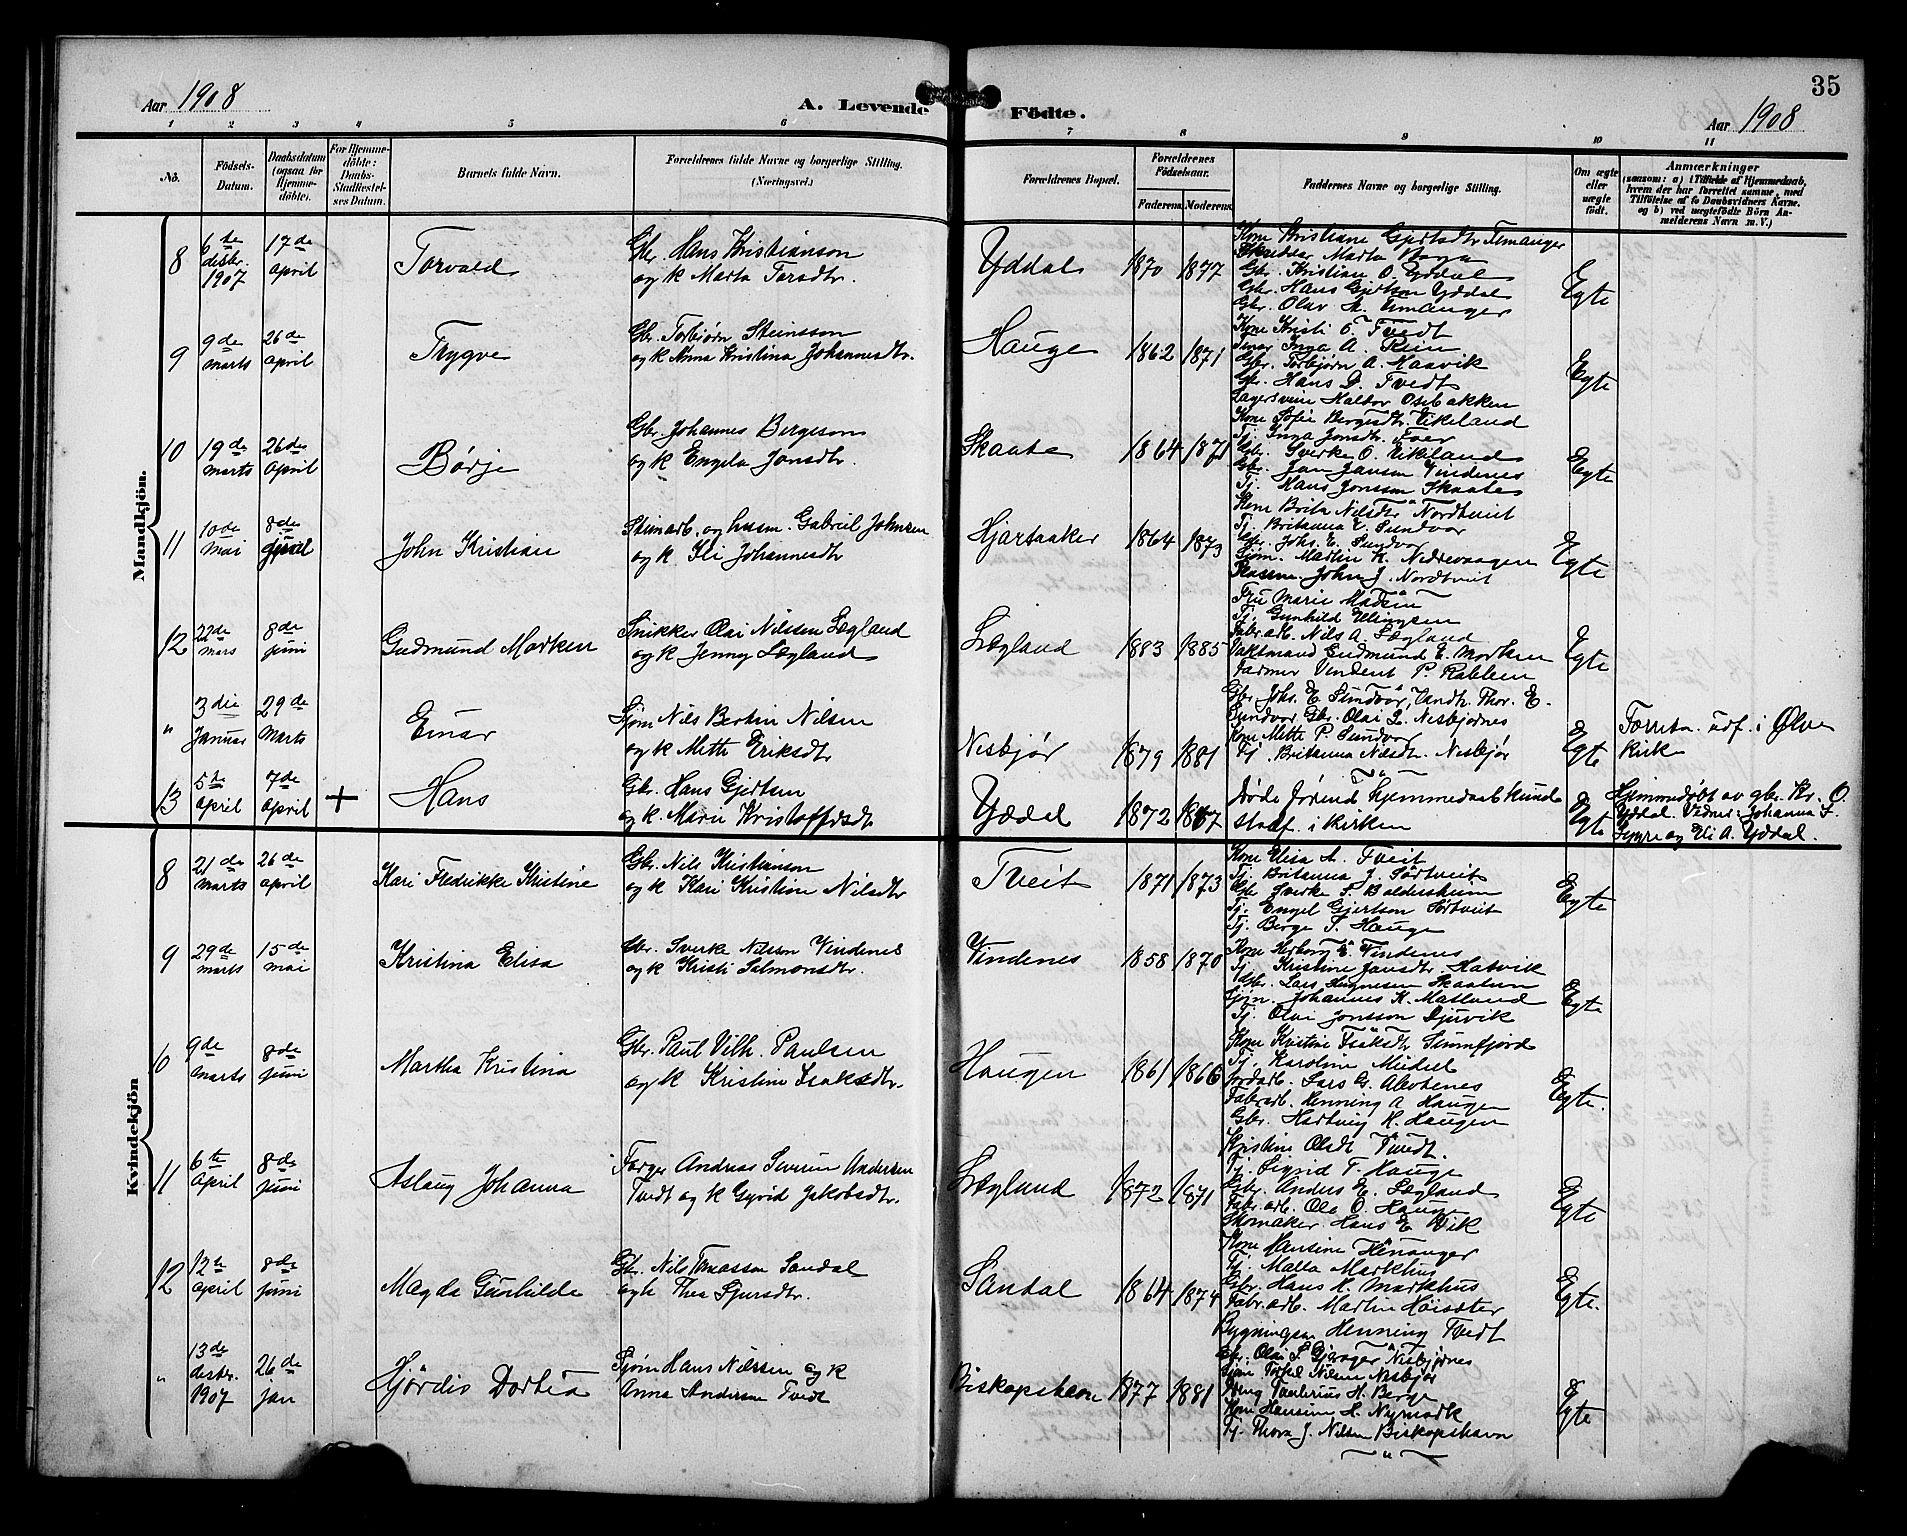 35
Aar 1908
A. Levende Födte.
Aar 1908
1 2 3 4 5 6 7 8 9 10 11
No.
Födsels-Datum.
Daabsdatum (ogsaa for Hjemmedöbte).
For Hjemmedöbte: Daabs-Stadfæstelses Datum.
Barnets fulde Navn.
Forældrenes fulde Navne og borgerlige Stilling. (Næringsvei.)
Forældrenes Bopæl.
Forældrenes Födselsaar.
Faderens. Moderens.
Faddernes Navne og borgerlige Stilling.
Om ægte eller uægte födt.
Anmærkninger
(saasom: a) i Tilfælde af Hjemmedaab, hvem der har forrettet samme, med Tilföielse af to Daabsvidners Navne. og b) ved uægtefödte Börn Anmelderens Navn m. V.)
Mandkjön.
8
6te desbr. 1907
17de april
Torvald
Gbr. Hans Kristianson
og k Marta Larsdtr.
Yddal
1870 1877
Kone Kristiane Gjertsdtr Timanger
Gbr. Kristian O. Yddal
Gbr. Hans Gjertson Yddal
Gbr. Olav H. Timanger
Egte
9
9de marts
26de april
Trygve
Gbr. Torbjørn Steinsson
og k Anna Kristina Johannesdtr.
Hauge
1862 1871
Kone Kristi O. Tvedt
Inga A. Rein
Gbr. Torbjørn A. Haavik
Gbr. Hans D. Tvedt
Haldor Osebakken
Egte
10
19de marts
26de april
Børje
Gbr. Johannes Bergeson
og k Engela Jonsdtr.
Skaate
1864 1871
Kone Sofie Bergesdtr. Eikeland
Tj. Inga Jonsdtr.
Gbr. Sverke O. Eikeland
Gbr. Jan Janson Vindenes
Tj. Hans Jonsson Skaate
Egte
11
10de mai
8de juni
John Kristian
Stenarb. og husm. Gabriel Johnsen
og k Eli Johannesdtr
Hjartaaker
1864 1873
Kone Brita Nilsdtr Nordtveit
Tj. Britanna E. Sundvor
Gbr. Johs. E. Sundvor
Sjøm. Martin K. Nedrevaagen
John J. Nordtveit
Egte
12
22de mars
8de juni
Gudmund Morken
Snikker Olai Nilssen Lægland
og k Jenny Lægland
Lægland
1883 1885
Fru Marie Madsen
Tj. Gunhild Ellingsen
Fabr.arb. Nils A. Lægland
Vaktmand Gudmund E. Morken
Farmer Vindent P. Rabben
Egte
"
3die Januar
29de Marts
Einar
Sjøm Nils Bertin Nilsen
og k Mette Eriksdtr
Nesbjør
1879 1881
Gbr. Johs. E. Sundvor, Landh. Thor. E.
Sundvor Gbr. Olai L. Nesbjørnes
Kone Mette P. Sundvor
Tj. Britanna Nilsdtr. Nesbjør
Egte
Forretn. udf. i Ølve
kirk
13
5te April
7de April
+
Hans
Gbr. Hans Gjertsen
og k. Mari Kristoffersdtr
Yddal
1872 1867
Døde førend hjemmedaab kunde
stadf. i kirken
Egte
Hjemmedøbt av gbr. Kr. O.
Yddal. Vidner: Johanna L.
og Eli A. Yddal.
Kvindekjön
8
21de marts
26de april
Kari Fredrikke Kristine
Gbr. Nils Kristianson
og k Kari Kristine Nilsdtr
Tveit
1871 1873
Kone Elisa A. Tveit
Tj. Britanna J. Sørtveit
Gbr Sverke S. Baldersheim
Tj. Engel Gjertson Sørtveit
Tj. Berge S. Hauge
Egte
9
29de marts
15de mai
Kristina Elisa
Gbr. Sverke Nilsson Vindenes
og k Kristi Salmonsdtr.
Vindenes
1858 1870
Kone Herborg E. Vindenes
Tj. Kristine Jansdtr. Hatvik
Gbr. Lars Skaatun
Sjøm. Johannes K. Matland
Tj. Olai Jonsson Djuvik
Egte
10
9de marts
8de juni
Martha Kristina
Gbr. Paul Vilh. Paulsen
og k Kristine Isaksdtr.
Haugen
1861 1866
Kone Kristine Isaksdtr
Tj. Karoline
Jordarb. Lars G.
Fabr.arb. Henning A Haugen
Gbr. Hartvig H. Haugen
Egte.
11
6te April
8de juni
Aslaug Johanna
Farger Andreas Severin Andersen
Tvedt og k Gyrid Jakobsdtr.
Lægland
1872 1871
Kristine Olsdt Tvedt.
Tj. Sigrid T. Hauge
Gbr. Anders E. Lægland
Fabr.arb. Ole O. Hauge
Skomaker Hans E. Vik
Egte
12
12te april
8de juni
Magda Gunhilda
Gbr. Nils Tomasson Sandal
og k Thea Sjursdtr.
Sandal
1864 1874
Kone Hansine Henanger
Tj. Malla Markhus
Gbr. Hans H. Markhus
Fabr.arb. Martin Høisæter
Bygningsm Henning Tvedt
Egte.
"
13de desbr. 1907
26de jan
Hjørdis Dortea
Sjøm Hans Nilssen og k
Anna Andersen Tvedt
Biskopshavn
1877 1881
Gbr. Olai S. Nesbjørnes
Sjøm Torkel Nilsen Nesbjør
H. Berge
Kone Hansine H. Nymark
Tj. Thora J. Nilsen Biskopshavn
Egte